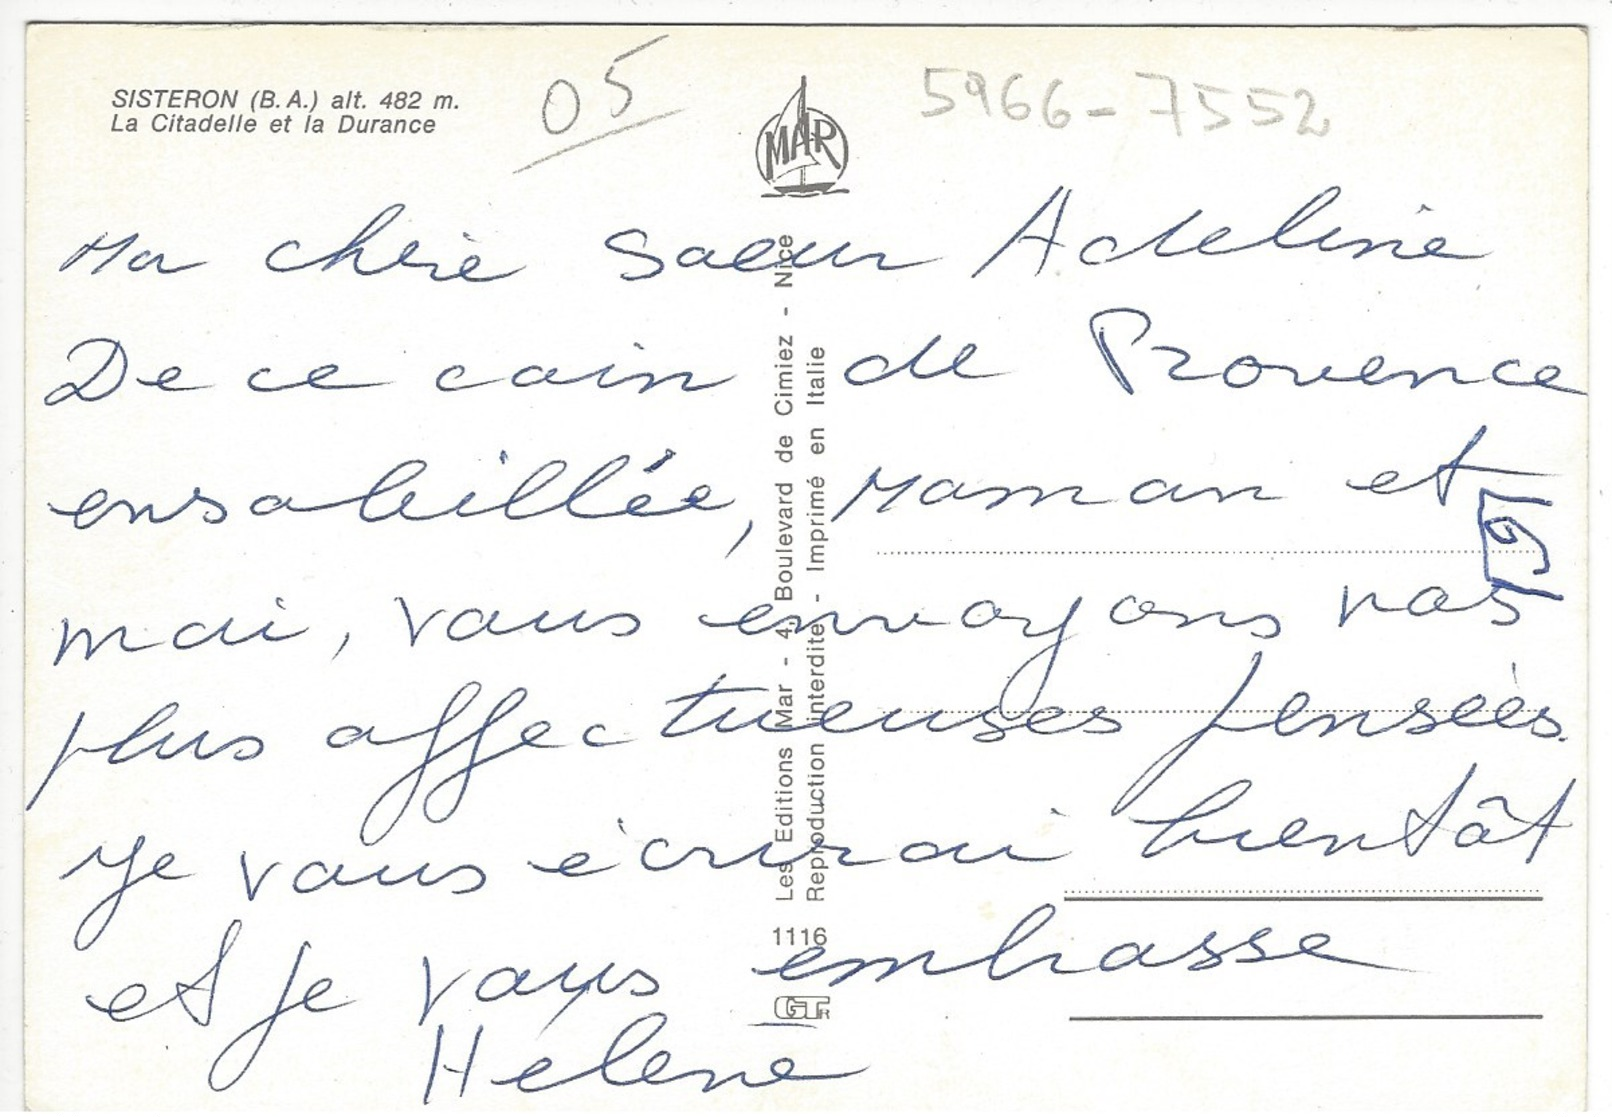 SISTERON (B.A.) alt. 482 m.
La Citadelle et la Durance
05
MAR
5966-7552
Ma chère Soeur Adeline
De ce coin de Provence
ensoleillée, Maman et
moi, vous envoyons nos
plus affectueuses pensées.
Je vous écrirai bientôt
et je vous embrasse
Hélène
Les Editions Mar - 4, Boulevard de Cimiez - Nice
Reproduction interdite - Imprimé en Italie
1116
GTR